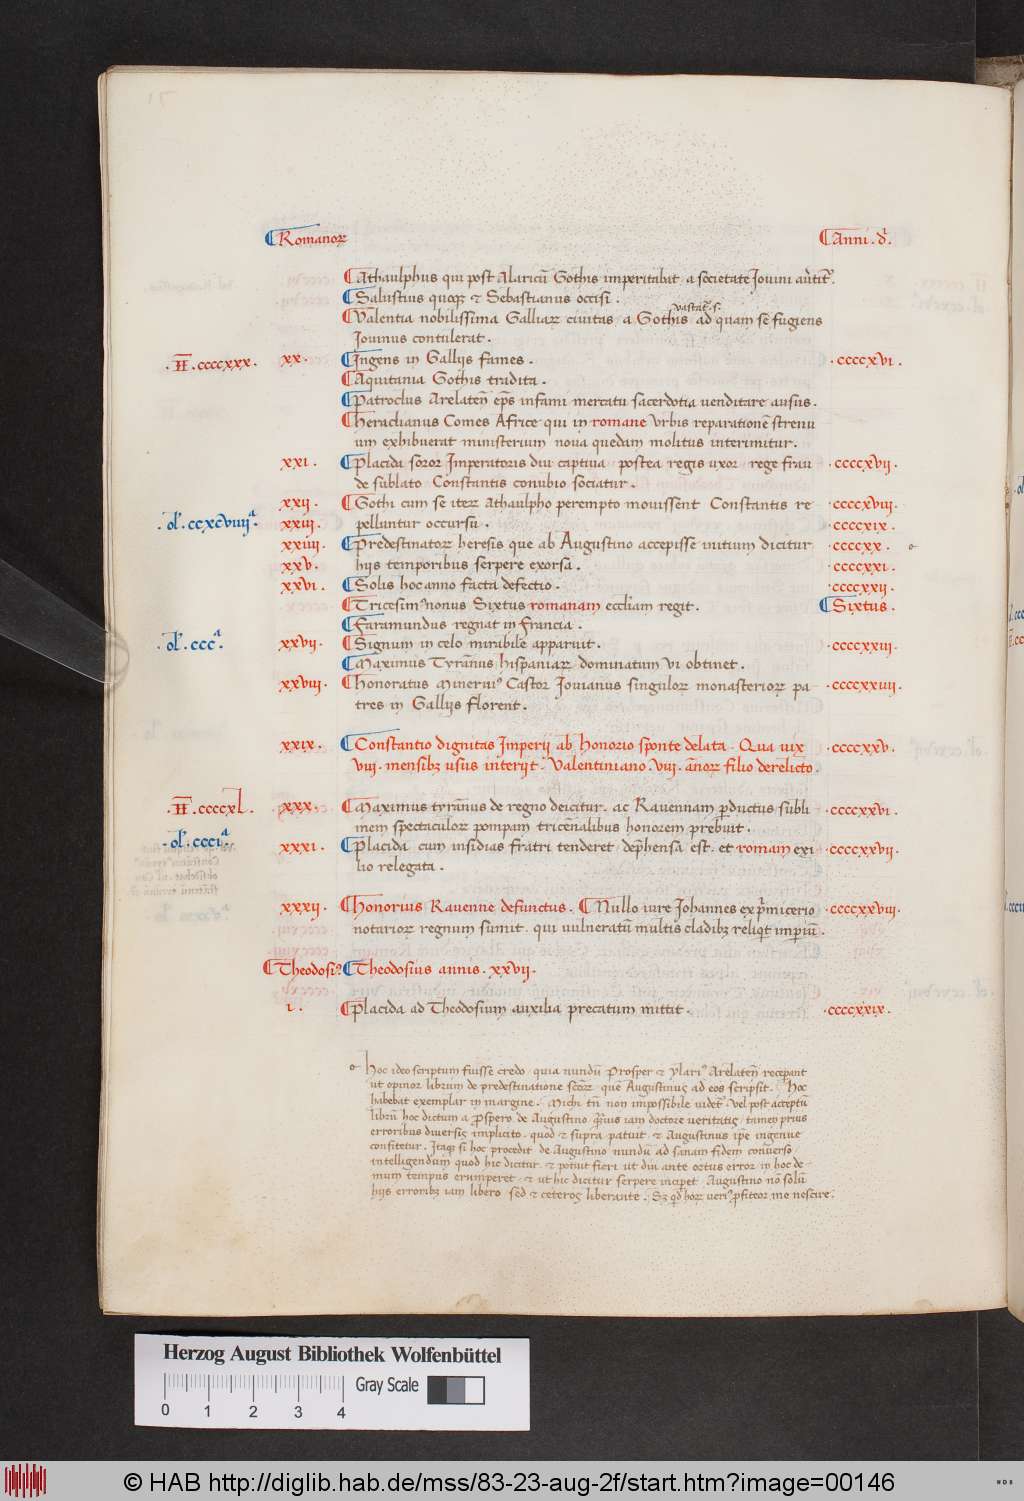 Romanoꝝ Anni . d̄.
Athaulphus qui post Alaricū Gothis imperitabat a societate Iouini au̇titͬ.
Salustius quoqꝫ ⁊ Sebastianus occisi .
vastatͬ. s.
Valentia nobilissima Galliaꝝ ciuitas a Gothis ad quam se fugiens
Iouinus contulerat .
.II̅.ccccxxx. xx. Ingens in Gallijs fames . .ccccxvi.
Aquitania Gothis tradita .
Patroclus Arelateñ ep̄s infami mercatu sacerdotia uenditare ausus .
Heraclianus Comes Africe qui in romane Vrbis reparationē strenu
um exhibuerat ministerium noua quedam molitus interimitur .
xxi. Placida soror Imperatoris diu captiua postea regis uxor rege frau .ccccxvii.
de sublato Constantis conubio sociatur .
xxii. Gothi cum se iteꝝ Athaulpho perempto mouissent Constantis re .ccccxviii.
.ol̓.ccxcviiii.ᵃ xxiii. pelluntur occursu . .ccccxix.
xxiiii. Predestinatoꝝ heresis que ab Augustino accepisse initium dicitur .ccccxx.
xxv. hijs temporibus serpere exorsa . .ccccxxi.
xxvi. Solis hoc anno facta defectio . .ccccxxii.
Tricesim⁹nonus Sixtus romanam eccl̄iam regit . Sixtus .
Faramundus regnat in Francia .
.ol̓.ccc.ᵃ xxvii. Signum in celo mirabile apparuit . .ccccxxiii.
Maximus Tyrān̄us hispaniaꝝ dominatum vi obtinet .
xxviii. Honoratus Mineruī⁹ Castor Iouianus singuloꝝ monasterioꝝ pa .ccccxxiiii.
tres in Gallijs florent .
xxix. Constantio dignitas Imperij ab Honorio sponte delata . Qua uix .ccccxxv.
viii. mensibꝫ usus interijt . Valentiniano . viii. ānoꝝ filio derelicto .
.II̅.ccccxl. xxx. Maximus tyrānus de regno deicitur . ac Rauennam p̱ductus subli .ccccxxvi.
mem spectaculoꝝ pompam tricēnalibus honorem prebuit .
.ol̓.ccci.ᵃ xxxi. Placida cum insidias fratri tenderet dep̄hensa est . et romam exi .ccccxxvii.
lio relegata .
xxxii. Honorius Rauenne defunctus . Nullo iure Iohannes exp̄micerio .ccccxxviii.
notarioꝝ regnum sumit . qui uulneratū multis cladibꝫ reliqͥt imp̱iū .
Theodosi⁹ Theodosius annis . xxvii.
i . Placida ad Theodosium auxilia precatum mittit . .ccccxxix.
Hoc ideo scriptum fuisse credo quia nundū Prosper ⁊ ylari⁹ Arelateñ recep̱ant
ut opinor librum de predestinatione sc̄oꝝ quē Augustinus ad eos scripsit . Hoc
habebat exemplar in margine . Michi tn̄ non impossibile uidetͬ . Vel post acceptū
librū hoc dictum a Prosꝑero de Augustino qͥ prius iam doctore ueritatis tamen prius
erroribus diuersis implicito quod ⁊ supra patuit ⁊ Augustinus ip̄e ingenue
confitetur . Itaqꝫ si hoc procedit de Augustino nundū ad sanam fidem conuerso
intelligendum quod hic dicitur ⁊ potuit fieri ut diu ante ortus error in hoc de
mum tempus erumperet ⁊ ut hic dicitur serpere incipet Augustino nō solū
hijs erroribꝫ iam libero sed ⁊ ceteros liberante . Sꝫ qͥd hoꝝ ueri⁹ p̱fiteor me nescire .
Herzog August Bibliothek Wolfenbüttel
Gray Scale
0 1 2 3 4
© HAB http://diglib.hab.de/mss/83-23-aug-2f/start.htm?image=00146